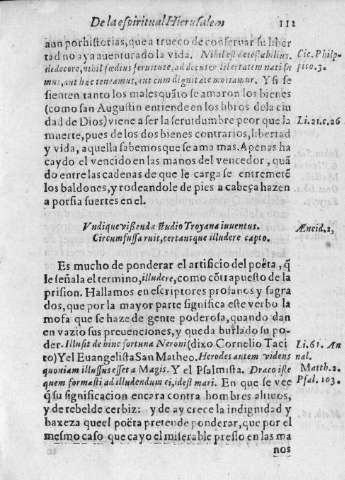 De la espiritual Hierusalem 112
aun por historias, que a trueco de conseruar su liber
tad no aya auenturado la vida. Nihil est detestabilius
dedecore, nihil fœdius seruitute, ad decus et libertatem nati su
mus, aut hæc teneamus, aut cum dignitate moriamur. Y si se
Cic. Philip-
pico. 3.
sienten tanto los males quãto se amaron los bienes
(como san Augustin entiende en los libros de la ciu
dad de Dios) viene a ser la seruidumbre peor que la
Li. 21. c. 26
muerte, pues de los dos bienes contrarios, libertad
y vida, aquella sabemos que se ama mas. Apenas ha
caydo el vencido en las manos del vencedor, quã
do entre las cadenas de que le carga se entremetẽ
los baldones, y rodeandole de pies a cabeça hazen
a porfia suertes en el.
Vndique visenda studio Troyana iuuentus.
Circumfussa ruit, certantque illudere capto.
Æneid. 2,
Es mucho de ponderar el artificio del poëta, q̃
le señala el termino, illudere, como cõtrapuesto de la
prision. Hallamos en escriptores profanos y sagra
dos, que por la mayor parte significa este verbo la
mofa que se haze de gente poderosa, quando dan
en vazio sus preuenciones, y queda burlado su po-
der. Illusit de hinc fortuna Neroni (dixo Cornelio Taci
to) Y el Euangelista San Matheo. Herodes antem videns
quoniam illussus esset a Magis. Y el Psalmista. Draco iste
quem formasti ad illudendum ei, id est mari. En que se vee
Li. 61. An
nal.
Matth. 2.
Psal. 103.
q̃ su significacion encara contra hombres altiuos,
y de rebelde cerbiz: y de ay crece la indignidad y
baxeza que el poëta pretende ponderar, que por el
mesmo caso que cayo el miserable presso en las ma
nos